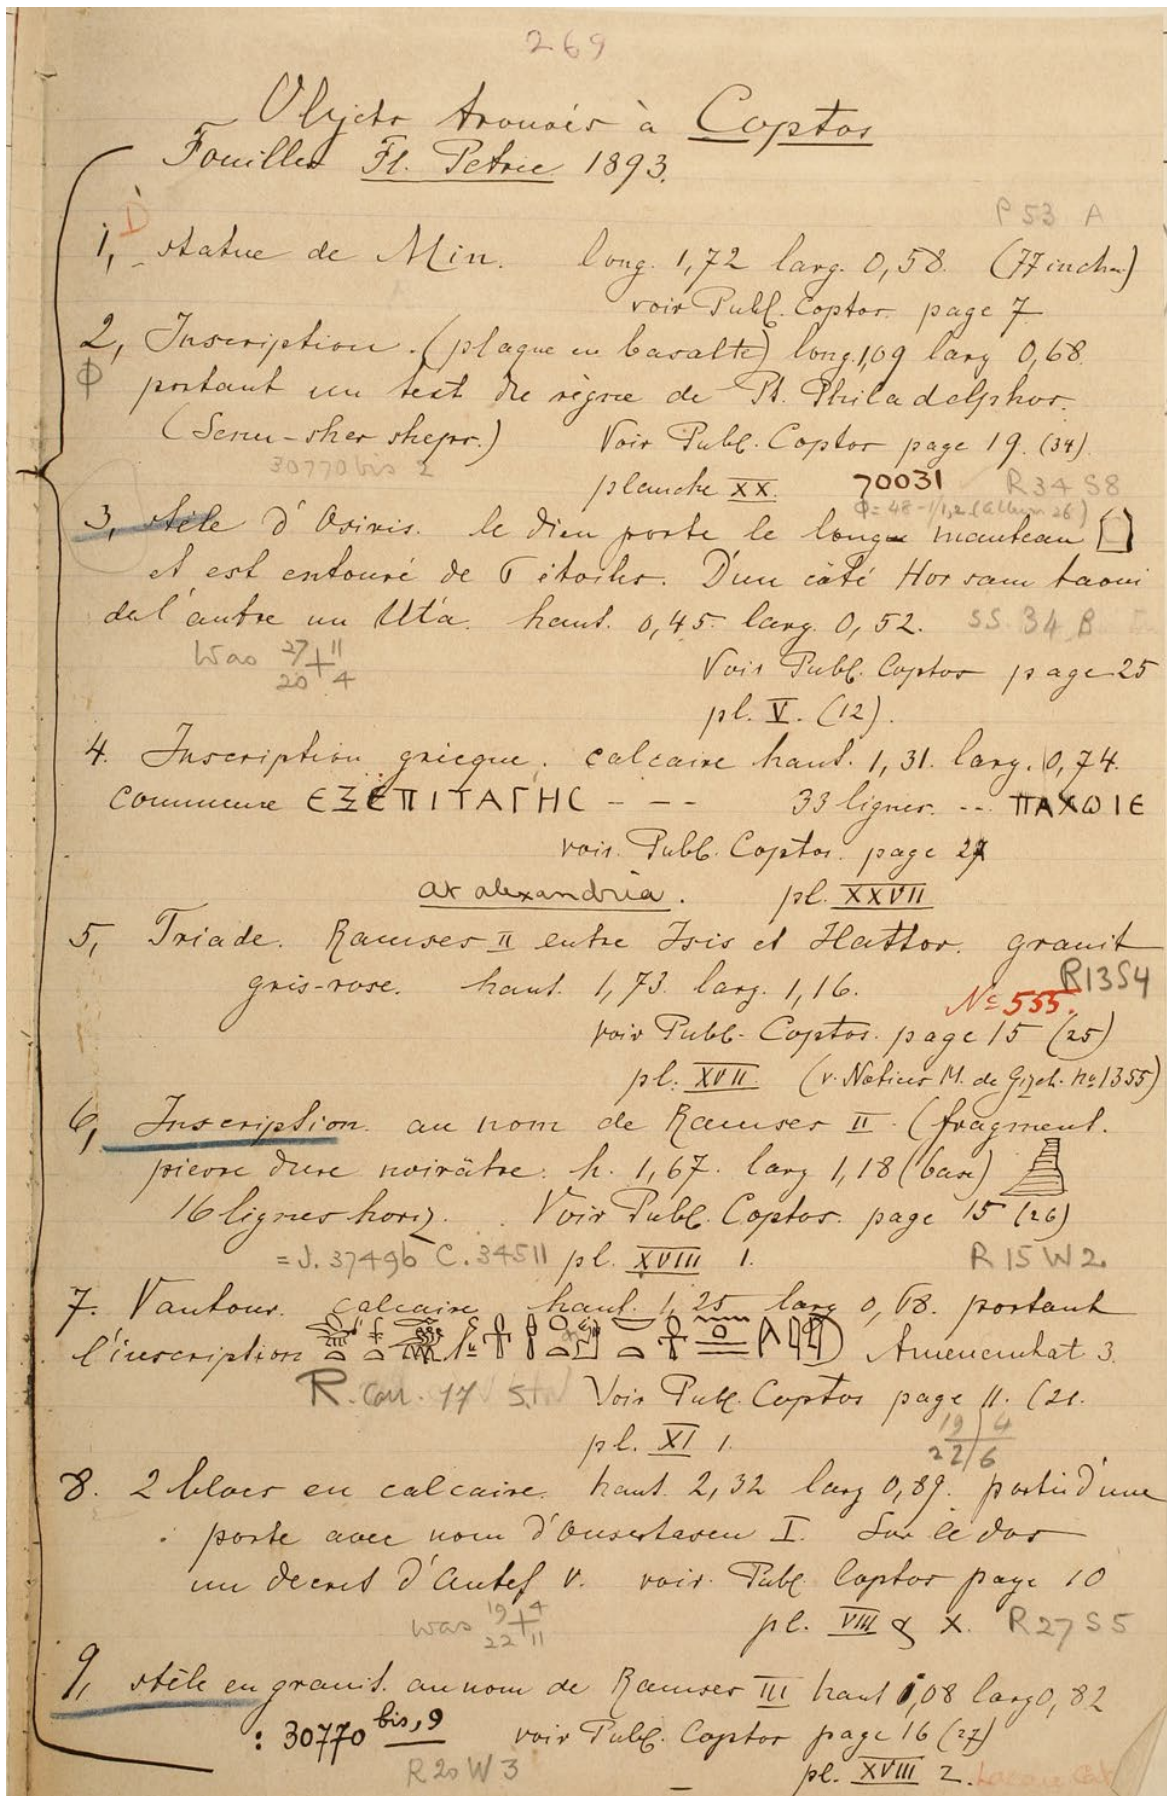 269
Objets trouvés à Coptos
Fouilles Fl. Petrie 1893.
P 53 A
1, statue de Min. long. 1,72 larg. 0,58. (77 inches)
voir Publ. Coptos. page 7
2, Inscription. (plaque en basalte) long. 1,09 larg 0,68.
Φ portant un text du règne de Pt. Philadelphos.
(Senu-sher shepr.) Voir Publ. Coptos page 19. (34)
30770 bis 2
planche XX. 70031 R34 S8
Φ = 48-1/1,2 (album 26)
3, stèle d'Osiris. le dieu porte le longue manteau
et est entouré de 5 étoiles. D'un côté Hor sam taoui
de l'autre un Uta. haut. 0,45. larg. 0,52. SS. 34 B
Was 27 11
20 4
Voir Publ. Coptos page 25
pl. V. (12).
4. Inscription gricque. calcaire haut. 1,31. larg. 0,74.
commence ΕΞΕΠΙΤΑΓΗϹ - - - 33 lignes. -- ΠΑΧΩΙΕ
voir. Publ. Coptos. page 27
at alexandria. pl. XXVII
5, Triade. Ramses II entre Isis et Hathor. granit
gris-rose. haut. 1,73. larg. 1,16. R13S4
No 555.
voir Publ. Coptos. page 15 (25)
pl. XVII. (v. Notices M. de Gizeh. no 1355)
6, Inscription. au nom de Ramses II (fragment.
pierre dure noirâtre. h. 1,67. larg 1,18 (base)
16 lignes horiz. Voir Publ. Coptos. page 15 (26)
= J. 37496 C. 34511 pl. XVIII 1. R 15 W 2.
7. Vautour. calcaire haut. 1,25 larg 0,68. portant
l'inscription Amenemhat 3.
R. Cou. 17 Voir Publ. Coptos page 11. (21.
pl. XI 1. 19 4
22 6
8. 2 blocs en calcaire. haut. 2,32 larg 0,89. partie d'une
porte avec nom d'Ousertasen I. Sur le dos
un decret d'Antef V. voir. Publ. Coptos page 10
was 19 4
22 11
pl. VIII & X. R 27 S 5
9, stèle en granit. au nom de Ramses III haut 1,08 larg 0,82
: 30770 bis, 9 voir Publ. Coptos page 16 (27)
R 20 W 3 pl. XVIII 2.